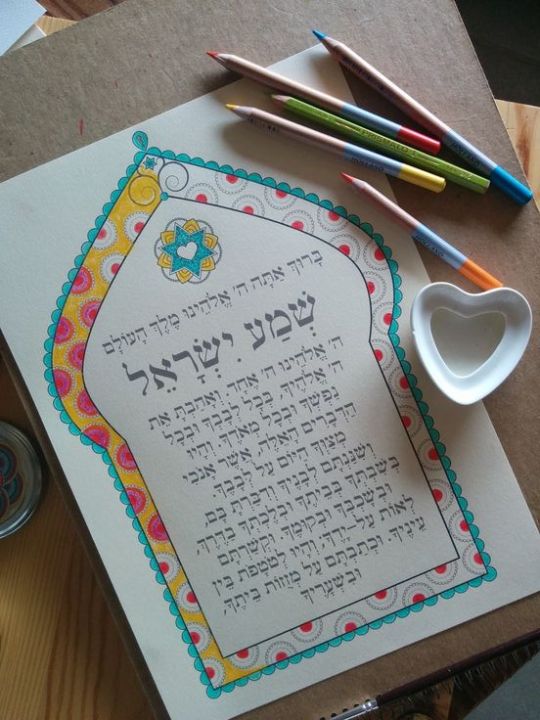 בָּרוּךְ אַתָּה ה' אֱלֹהֵינוּ מֶלֶךְ הָעוֹלָם
שְׁמַע יִשְׂרָאֵל
ה' אֱלֹהֵינוּ ה' אֶחָד. וְאָהַבְתָּ אֵת
ה' אֱלֹהֶיךָ, בְּכָל לְבָבְךָ וּבְכָל
נַפְשְׁךָ וּבְכָל מְאֹדֶךָ. וְהָיוּ
הַדְּבָרִים הָאֵלֶּה, אֲשֶׁר אָנֹכִי
מְצַוְּךָ הַיּוֹם עַל לְבָבֶךָ.
וְשִׁנַּנְתָּם לְבָנֶיךָ וְדִבַּרְתָּ בָּם,
בְּשִׁבְתְּךָ בְּבֵיתֶךָ וּבְלֶכְתְּךָ בַדֶּרֶךְ,
וּבְשָׁכְבְּךָ וּבְקוּמֶךָ. וּקְשַׁרְתָּם
לְאוֹת עַל-יָדֶךָ, וְהָיוּ לְטֹטָפֹת בֵּין
עֵינֶיךָ. וּכְתַבְתָּם עַל מְזֻזוֹת בֵּיתֶךָ,
וּבִשְׁעָרֶיךָ
PRISMALO